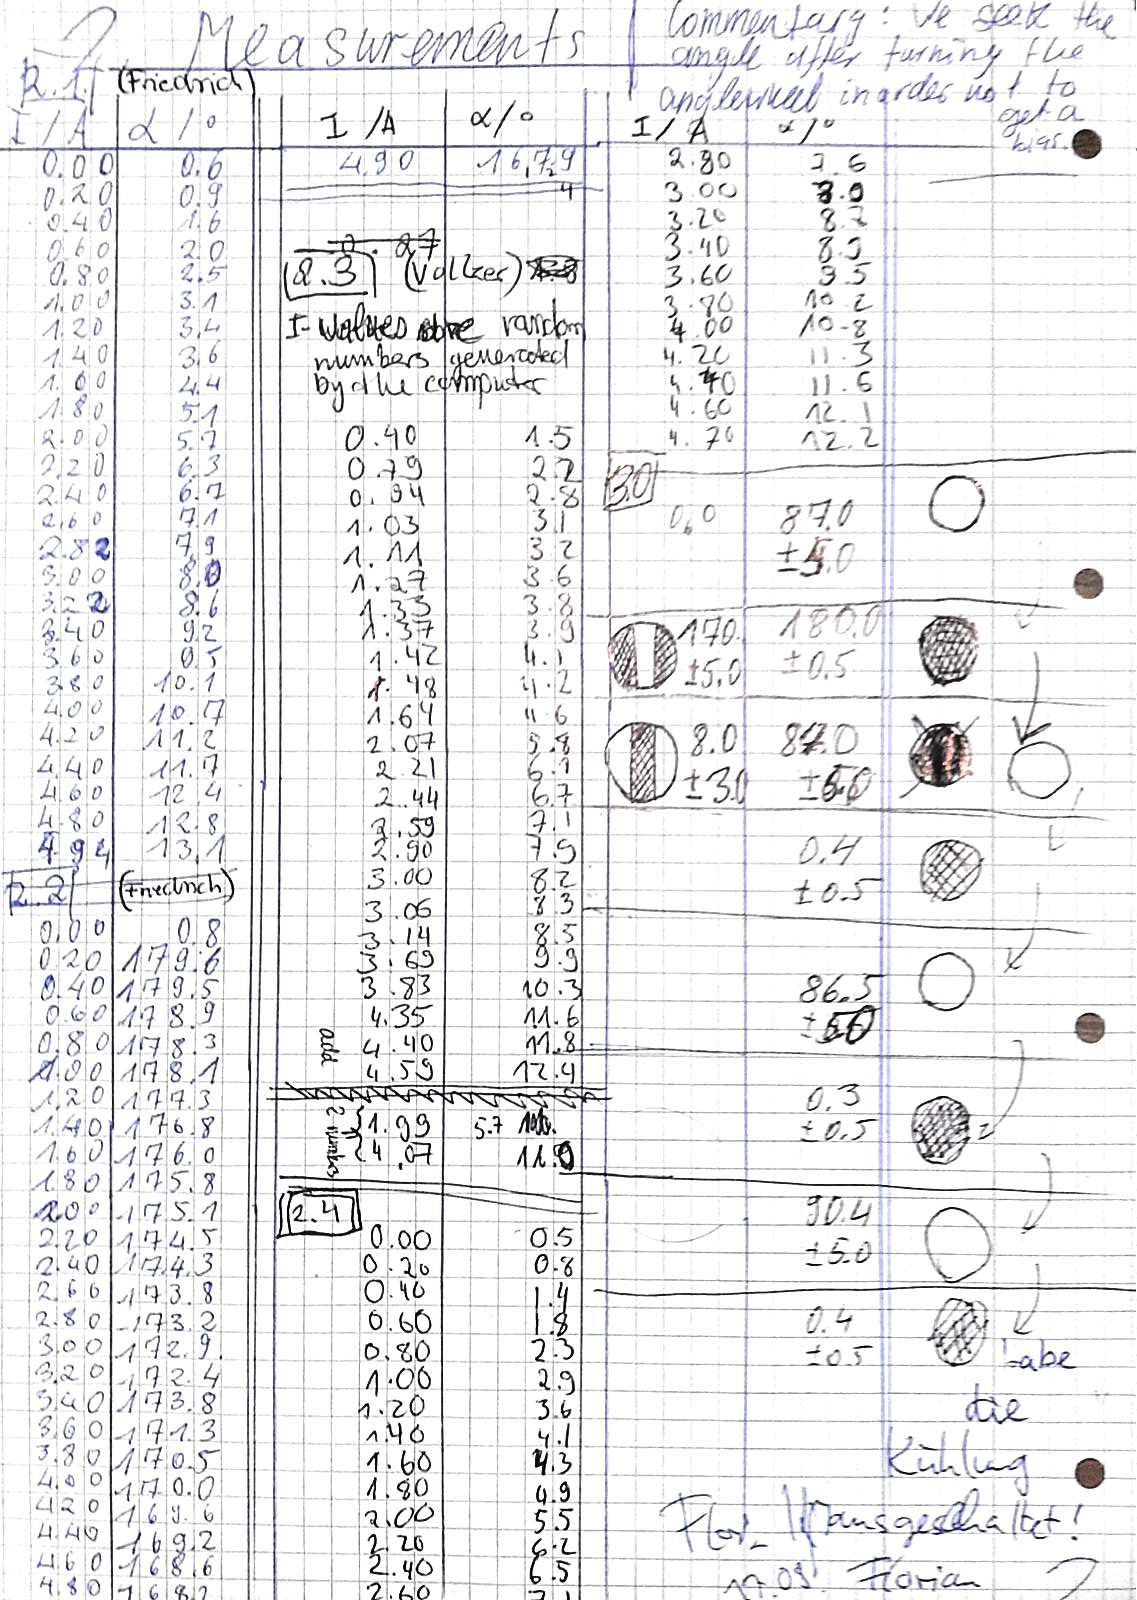 Measurements
2.1 (Friedrich)
I/A α/°
0.00 0.6
0.20 0.9
0.40 1.6
0.60 2.0
0.80 2.5
1.00 3.1
1.20 3.4
1.40 3.6
1.60 4.4
1.80 5.1
2.00 5.7
2.20 6.3
2.40 6.7
2.60 7.1
2.82 7.9
3.00 8.0
3.22 8.6
3.40 9.2
3.60 9.5
3.80 10.1
4.00 10.7
4.20 11.2
4.40 11.7
4.60 12.4
4.80 12.8
4.94 13.1
2.2 (Friedrich)
0.00 0.8
0.20 179.6
0.40 179.5
0.60 178.9
0.80 178.3
1.00 178.1
1.20 177.3
1.40 176.8
1.60 176.0
1.80 175.8
2.00 175.1
2.20 174.5
2.40 174.3
2.60 173.8
2.80 173.2
3.00 172.9
3.20 172.4
3.40 173.8
3.60 171.3
3.80 170.5
4.00 170.0
4.20 169.6
4.40 169.2
4.60 168.6
4.80 168.2
I/A α/°
4.90
2.3 (Volker)
I-values are random
numbers generated
by the computer
0.40 1.5
0.79 2.2
0.94 2.8
1.03 3.1
1.11 3.2
1.27 3.6
1.33 3.8
1.37 3.9
1.42 4.1
1.48 4.2
1.64 4.6
2.07 5.8
2.21 6.1
2.44 6.7
2.59 7.1
2.90 7.9
3.00 8.2
3.06 8.3
3.14 8.5
3.69 9.9
3.83 10.3
4.35 11.6
4.40 11.8
4.59 12.4
add
2 number
1.99 5.7
4.07 11.0
2.4
0.00 0.5
0.20 0.8
0.40 1.4
0.60 1.8
0.80 2.3
1.00 2.9
1.20 3.6
1.40 4.1
1.60 4.3
1.80 4.9
2.00 5.5
2.20 6.2
2.40 6.5
2.60 7.1
Commentary: We seek the
angle after turning the
anglewheel in order not to
get a
bias.
I/A α/°
2.80 7.6
3.00 8.0
3.20 8.2
3.40 8.9
3.60 9.5
3.80 10.2
4.00 10.8
4.20 11.3
4.40 11.6
4.60 12.1
4.70 12.2
3.0
0.0 87.0
±5.0
170. 180.0
±5.0 ±0.5
8.0 87.0
±3.0 ±5.0
0.4
±0.5
86.5
±5.0
0.3
±0.5
90.4
±5.0
0.4
±0.5
habe
die
Kühlung
ausgeschaltet!
17.09. Florian